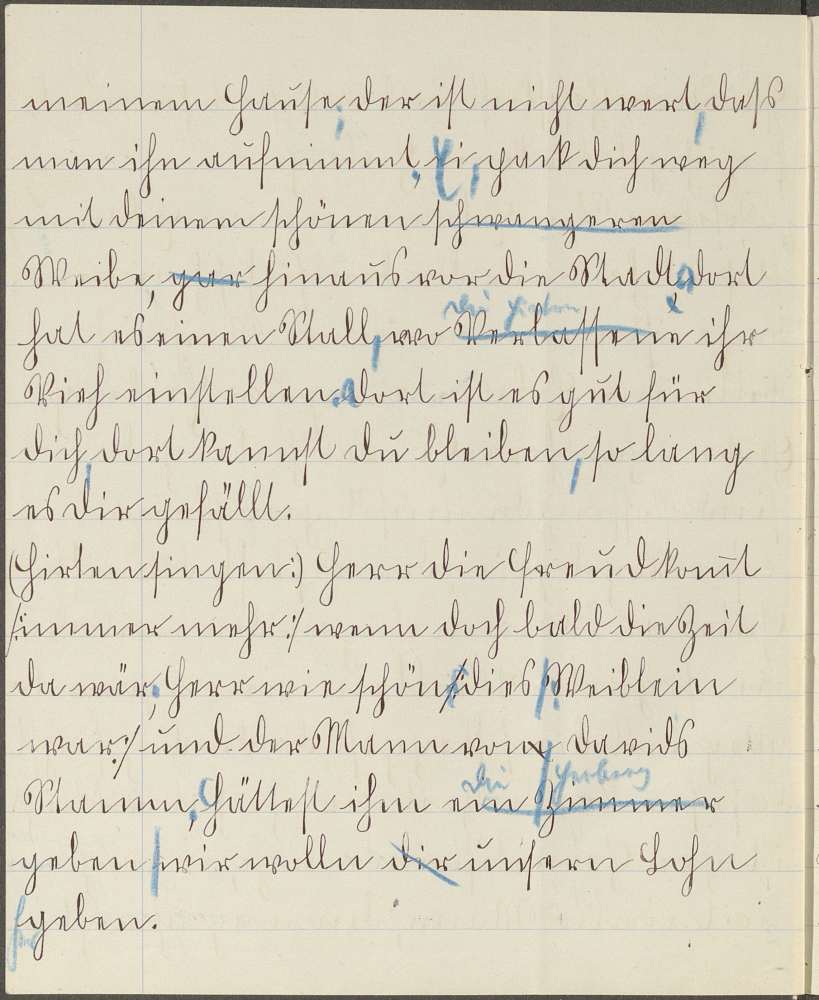 meinem Hause, der ist nicht wert, dass
man ihn aufnimmt, ei, pack dich weg
mit deinem schönen schwangeren
Weibe, gar hinaus vor die Stadt, dort
die Hirten
hat es einen Stall, wo Verlassene ihr
Vieh einstellen. dort ist es gut für
dich, dort kannst du bleiben, so lang
es dir gefällt.
(Hirten singen:) Herr die Freud komt
/:immer mehr:/ wenn doch bald die Zeit
da wär, Herr wie schön /:dies Weiblein
war:/ und der Mann von Davids
die Herberg
Stamm, hättest ihm ein Zimmer
geben wir wolln dir unsern Lohn
geben.